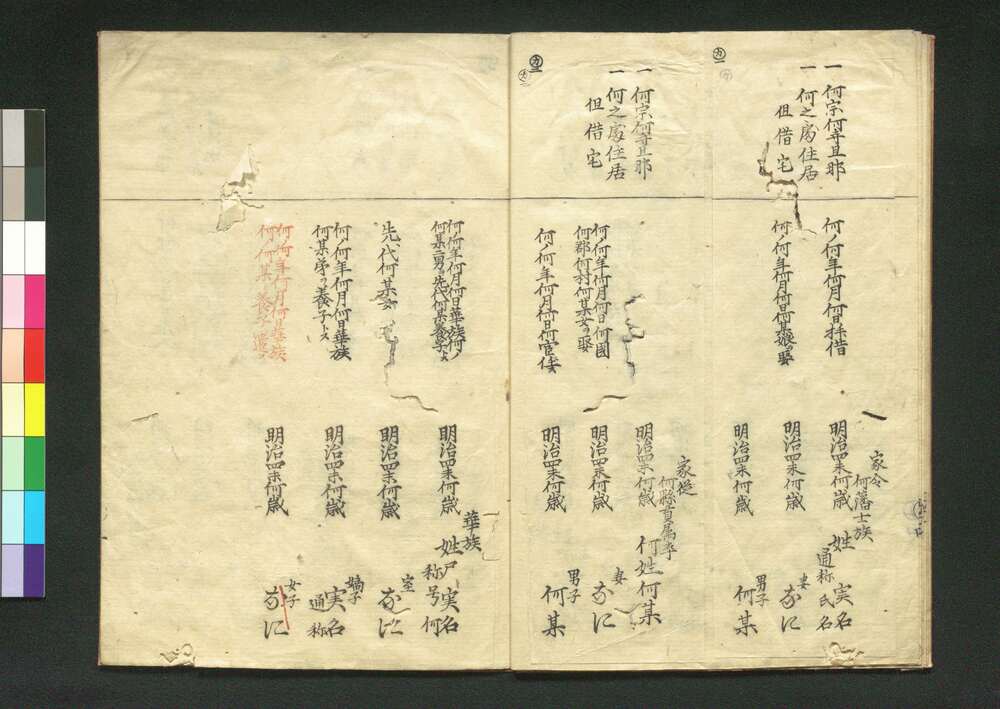 一何宗何寺旦那
一何之處住居
但借宅
何ノ何年何月何日拝借
何ノ何年何月何日何某娘ヲ娶
家令
何藩士族
明治四未何歳
姓
通称氏名
実名
明治四未何歳
妻
なに
明治四未何歳
男子
何某
一何宗何寺旦那
一何之處住居
但借宅
何ノ何年何月何日何國
何郡何村何某女ヲ娶
何ノ何年何月何日何官
家従
何縣貫属卒
明治四未何歳
何姓何某
明治四未何歳
妻
なに
明治四未何歳
男子
何某
何ノ何年何月何日華族何ノ
何某二男ヲ先代何某養子
先代何某女
何ノ何年何月何日華族
何某弟ヲ養子トス
何ノ何年何月何日華族
何ノ何某養子遣ス
華族
明治四未何歳
姓尸実名
称号何
明治四未何歳
室
なに
明治四未何歳
嫡子
実名
通称
明治四未何歳
女子
なに